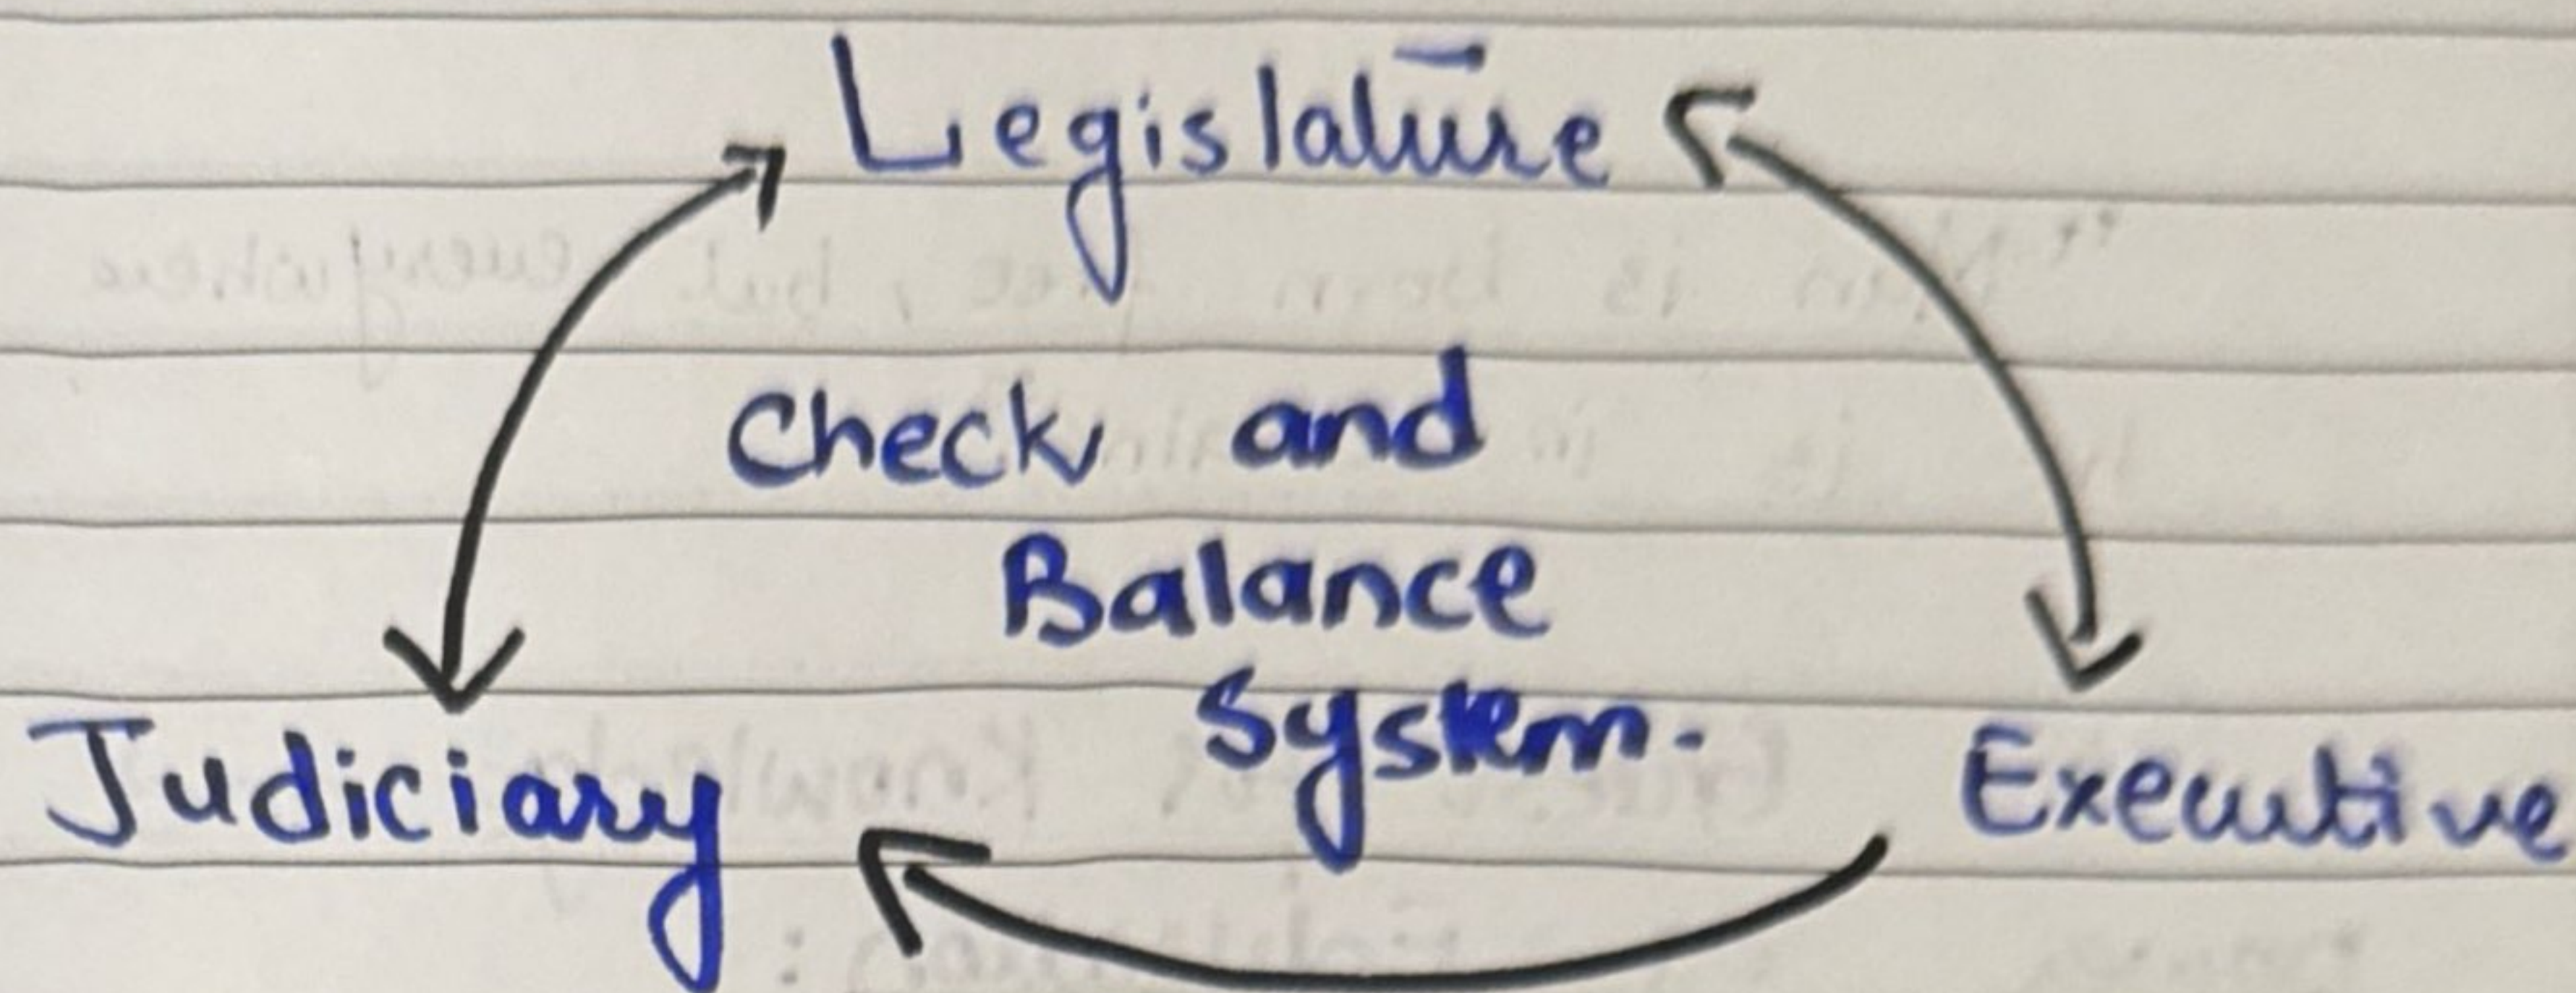 Legislature
Check and
Balance
System.
Judiciary
Executive